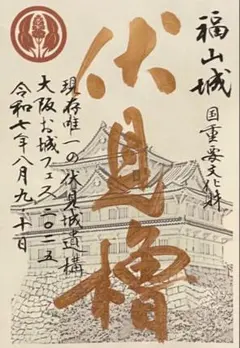 福山城
国重要文化財
伏見櫓
現存唯一の伏見城遺構
大阪お城フェス二〇二五
令和七年八月九